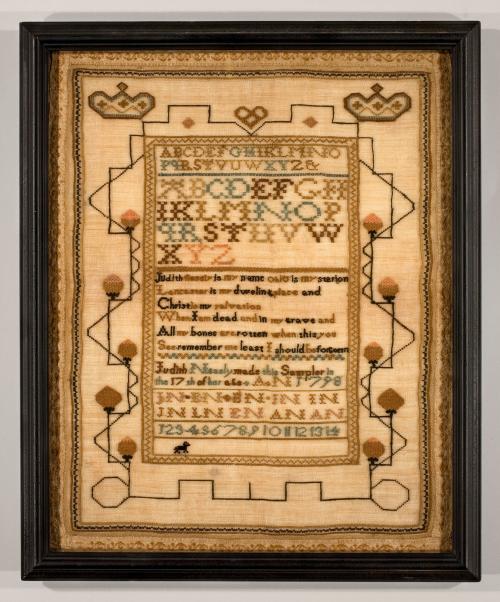 ABCDEFGHIKLMNO
PQRSTVUWXYZ&
ABCDEFGH
IKLMNOP
QRSTUVW
XYZ
Judith is my name is my station
Lancaster is my dweling place and
Christ is my salvation
When I am dead and in my grave and
All my bones are rotten when this you
See remember me least I should be forgotten
Judith Nessly made this Sampler in
the 17th of her age AN 1798
IN AN IN
JN LN EN AN AN
1234567891011121314